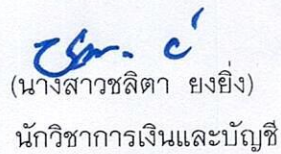 (นางสาวชลิตา ยงยิ่ง)
นักวิชาการเงินและบัญชี